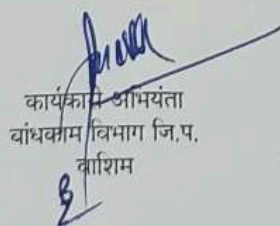 कार्यकारी अभियंता
बांधकाम विभाग जि.प.
वाशिम